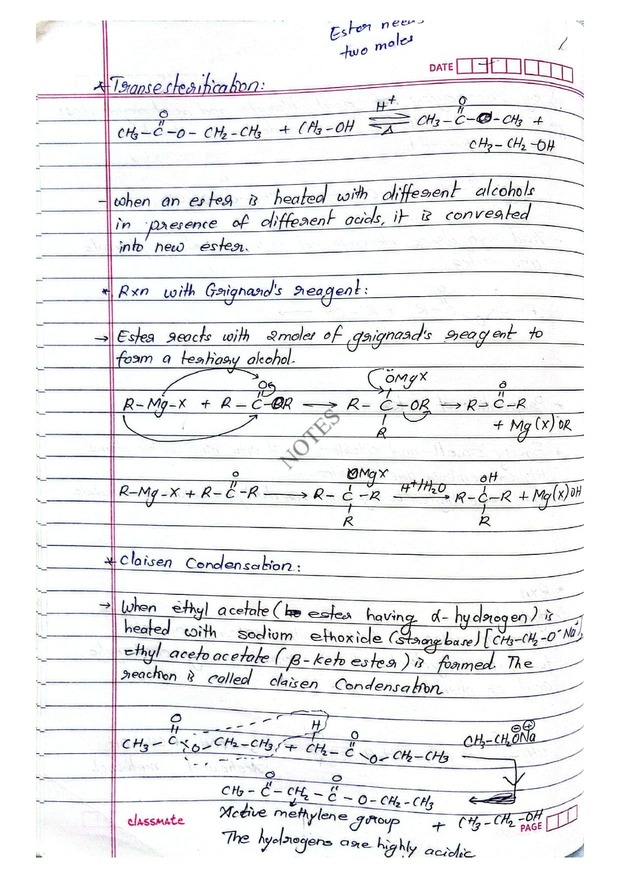 Ester needs
two moles
DATE
* Transesterification:
CH3-C(=O)-O-CH2-CH3 + CH3-OH ⇌ (H+, Δ) CH3-C(=O)-O-CH3 +
CH3-CH2-OH
- when an ester is heated with different alcohols
in presence of different acids, it is converted
into new ester.
* Rxn with Grignard's reagent:
→ Ester reacts with 2moles of grignard's reagent to
form a tertiary alcohol.
R-Mg-X + R-C(=O)-OR → R-C(OMgX)(R)-OR → R-C(=O)-R
+ Mg(X)OR
NOTES
R-Mg-X + R-C(=O)-R → R-C(OMgX)(R)-R → (H+/H2O) R-C(OH)(R)-R + Mg(X)OH
* Claisen Condensation:
→ When ethyl acetate (ester having α-hydrogen) is
heated with sodium ethoxide (strong base) [CH3-CH2-O-Na+],
ethyl acetoacetate (β-keto ester) is formed. The
reaction is called claisen Condensation
CH3-C(=O)-O-CH2-CH3 + H-CH2-C(=O)-O-CH2-CH3 CH3-CH2ONa
CH3-C(=O)-CH2-C(=O)-O-CH2-CH3
classmate Active methylene group + CH3-CH2-OH
PAGE
The hydrogens are highly acidic